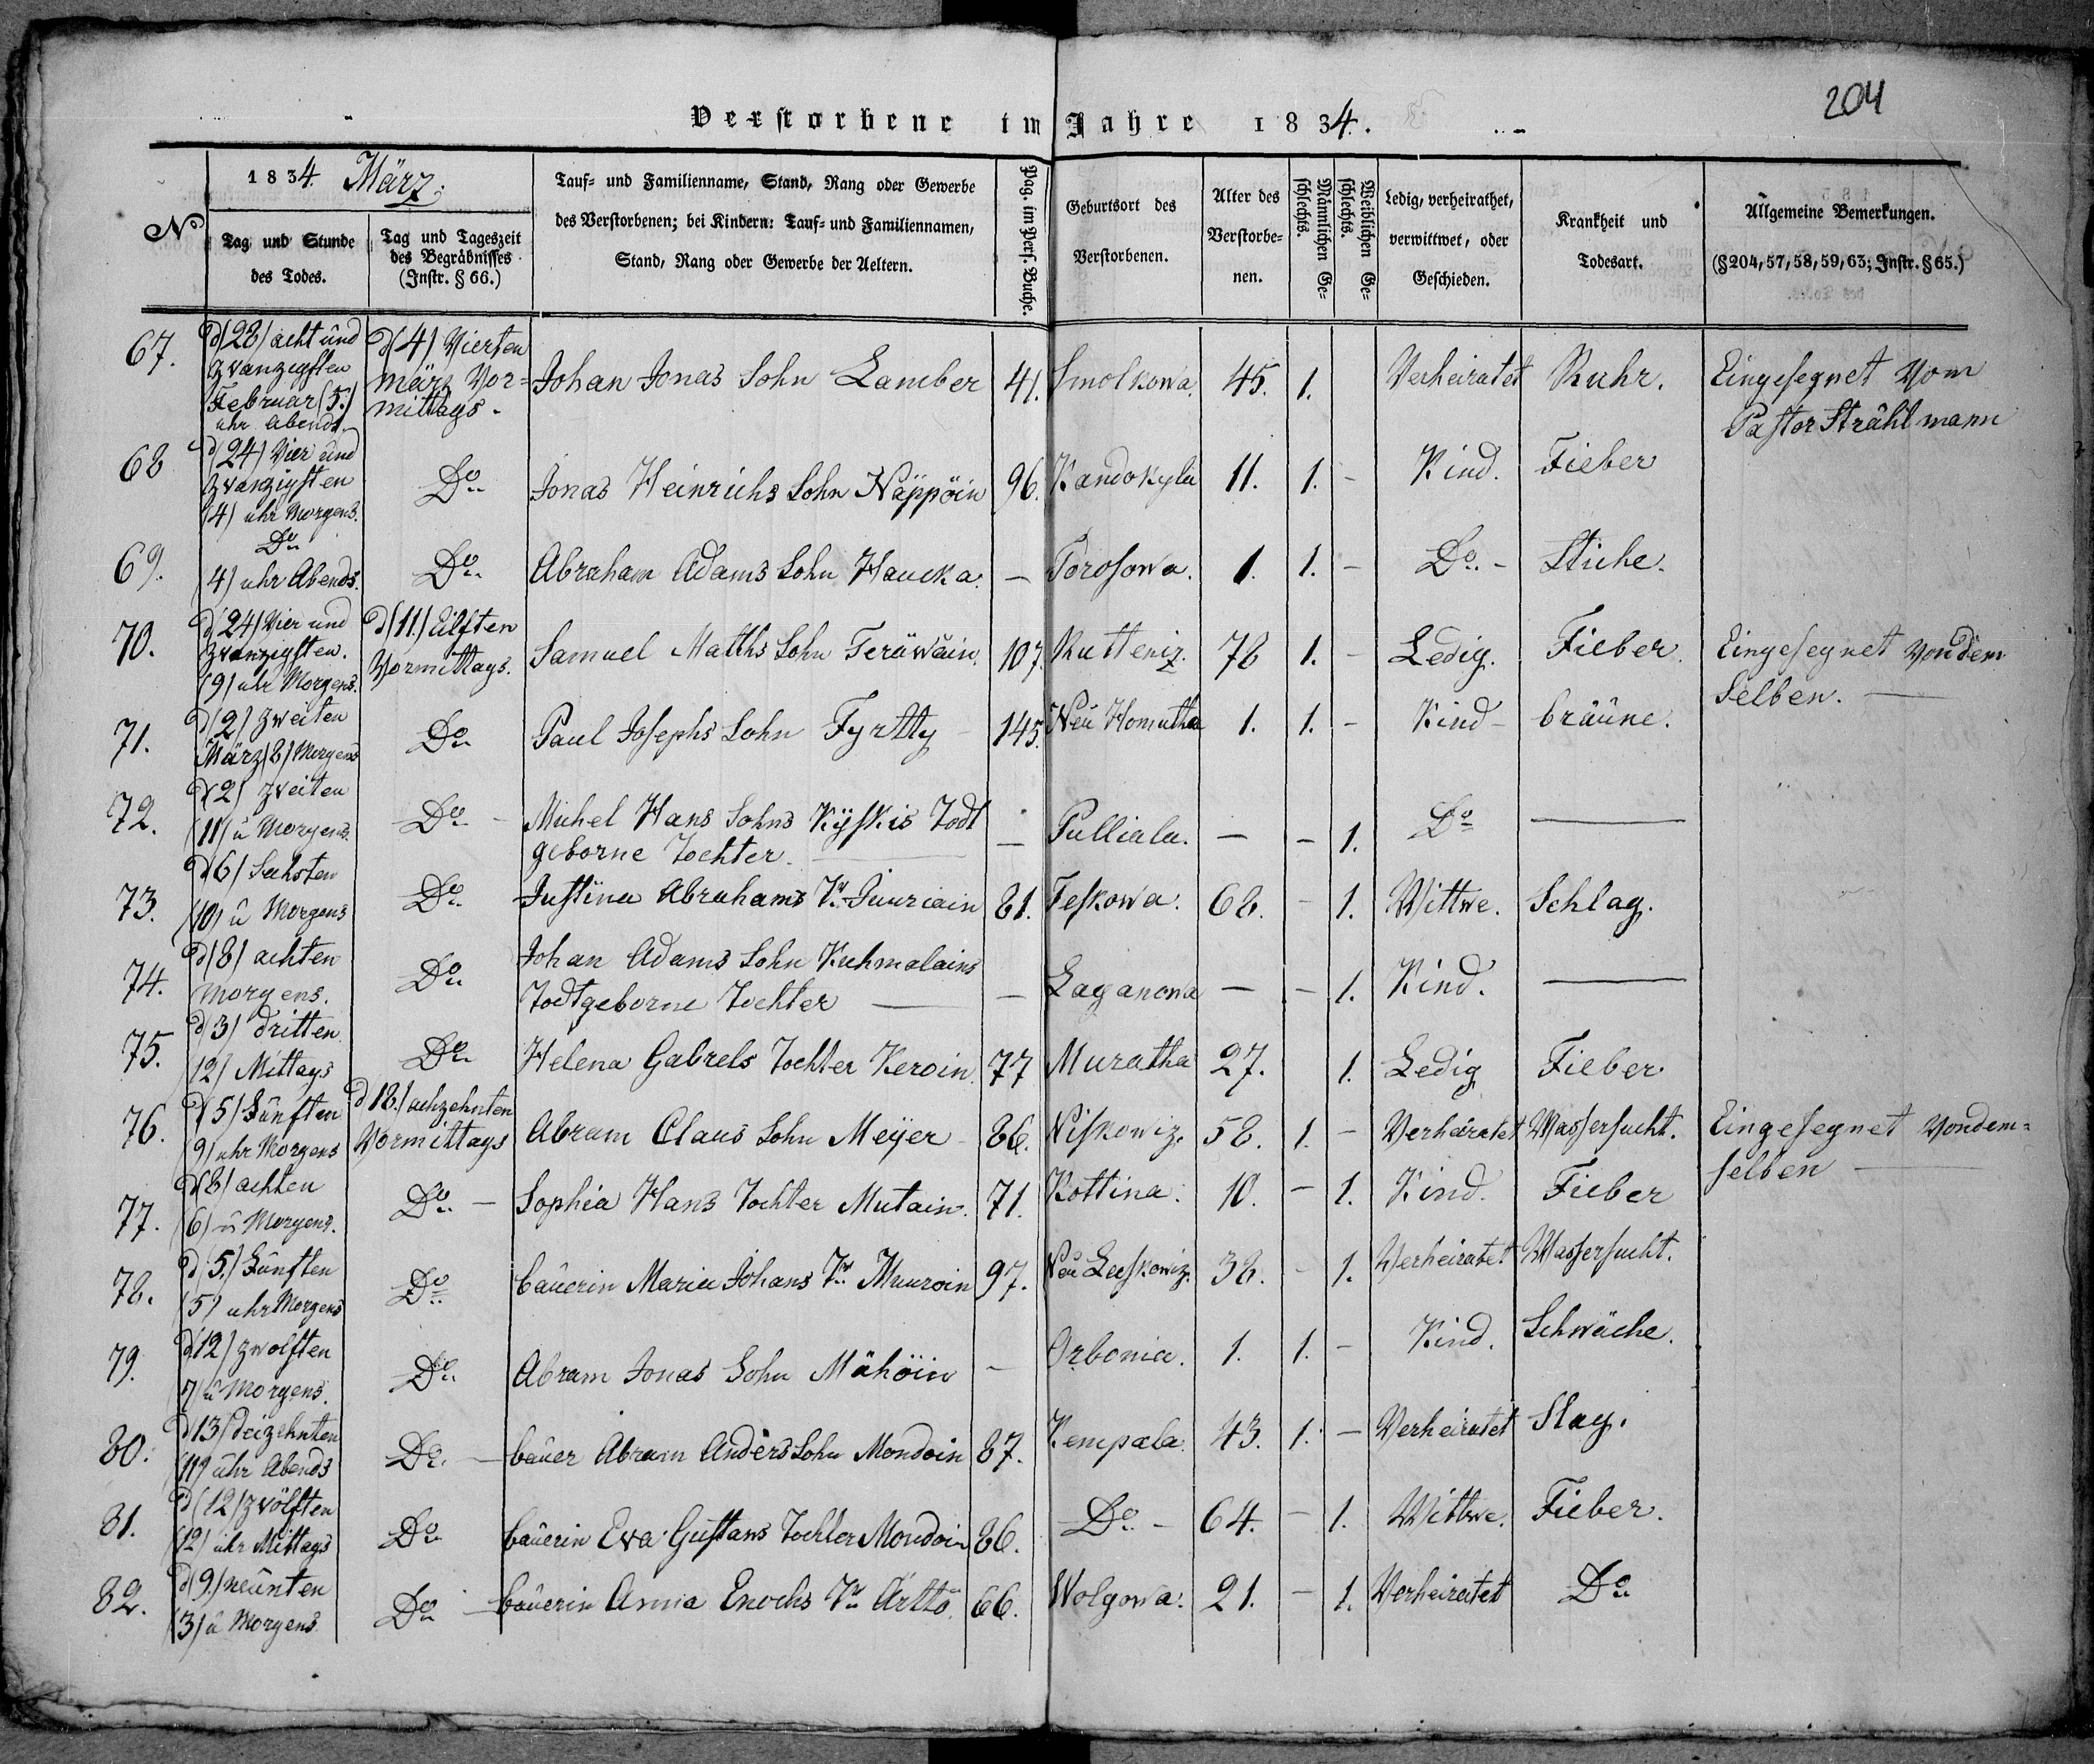 204
Verstorbene im Jahre 1834.
No
1834. März.
Tag und Stunde des Todes.
Tag und Tageszeit des Begräbnisses (Instr. § 66.)
Tauf- und Familienname, Stand, Rang oder Gewerbe des Verstorbenen; bei Kindern: Tauf- und Familiennamen, Stand, Rang oder Gewerbe der Aeltern.
Pag. im Pers. Buche.
Geburtsort des Verstorbenen.
Alter des Verstorbenen.
Männlichen Geschlechts.
Weiblichen Geschlechts.
Ledig, verheirathet, verwittwet, oder Geschieden.
Krankheit und Todesart.
Allgemeine Bemerkungen. (§ 204, 57, 58, 59, 63; Instr. § 65.)
67. d (28) acht und zwanzigsten Februar (5.) uhr Abends. d (4) Vierten März Vormittags. Johan Jonas Sohn Lamber 41. Smolkowa. 45. 1. Verheiratet Ruhr. Eingesegnet Vom Pastor Strählmann
68 d (24) Vier und zwanzigsten (4) uhr Morgens. Do Jonas Heinrichs Sohn Näppöin 96. Kandokyla 11. 1. - Kind. Fieber
69. Do 4) uhr Abends. Do Abraham Adams Sohn Haucka. — Torosowa. 1. 1. - Do. - Stiche.
70. d 24) Vier und zwanzigsten. (9) uhr Morgens. d (11.) Eilften Vormittags. Samuel Matths Sohn Teräwäin. 107. Rutteniz. 78 1. - Ledig. Fieber. Eingesegnet von dem Selben. —
71. d (2) zweiten März (8) Morgens Do Paul Josephs Sohn Tyrtty 145. Neu Homutha 1. 1. - Kind - bräune.
72. d (2) zweiten (11) u Morgens. Do - Michel Hans Sohns Kyskis Todt geborne Tochter. — — Pulliala. — - 1. Do —
73. d 6) Sechsten (10) u Morgens Do Justina Abrahams Tr. Juuriain 81. Teskowa. 68. - 1. Wittwe. Schlag.
74. d (8) achten morgens. Do Johan Adams Sohn Kuhmalains Todtgeborne Tochter — — Laganowa — - 1. Kind. —
75. d (3) dritten 12) Mittags Do Helena Gabrels Tochter Keroin. 77 Muratha 27. 1. Ledig Fieber.
76. d (5) Fünften 9) uhr Morgens d 18.) achzehnten Vormittags Abram Claus Sohn Meyer 86. Wiskowiz. 58. 1. - Verheiratet Wassersucht. Eingesegnet Vondemselben —
77. d (8) achten (6) u Morgens. Do. - Sophia Hans Tochter Mutain. 71. Kottina. 10. - 1. Kind. Fieber
78. d (5.) Fünften (5) uhr Morgens Do bäuerin Maria Johans Tr. Muuroin 97. Neu Leskowiz. 38. - 1. Verheiratet Wassersucht.
79. d 12) zwolften 7) u Morgens. Do Abram Jonas Sohn Mähöin - Orbonia. 1. 1. - Kind. Schwäche.
80. d 13) deizehnten (11) uhr Abends Do. — bauer Abram Anders Sohn Mondoin 87. Kempala. 43. 1. — Verheiratet Slag.
81. d (12) zwölften (12) uhr Mittags Do bäuerin Eva Gustans Tochter Mondoin 86. Do - 64. - 1. Wittwe. Fieber.
82. d (9.) neunten (3) u Morgens Do - bäuerin Anna Enochs Tr Ärttö. 66. Wolgowa. 21. - 1. Verheiratet Do